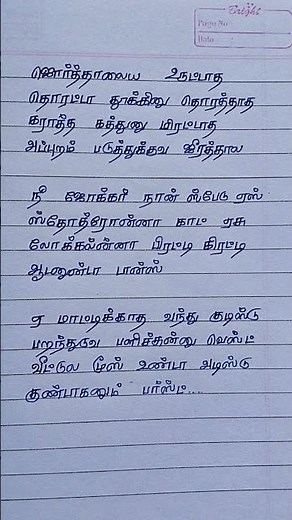 Bright
Page No
Date
ஜொர்த்தாலைய உருட்டாத
தொரட்டா தூக்கினு தொரத்தாத
கராத்த கத்துனு மிரட்டாத
அப்புறம் படுத்துக்குவ ஜீரத்தால
நீ ஜோக்கர் நான் ஸ்பேடு ஏஸ்
ஸ்தோத்ரோன்னா காட் ஏசு
லோக்கல்ன்னா பிரட்டி கிரட்டி
ஆடனுண்டா டான்ஸ்
ஏ மாட்டிக்காத வந்து குடிஸ்டு
பறந்துடுவ பளிச்சுன்னு வெஸ்ட்
வீட்டுல மீஸ் உண்டா அடிஸ்டு
குண்டாகனும் பர்ஸ்ட்....